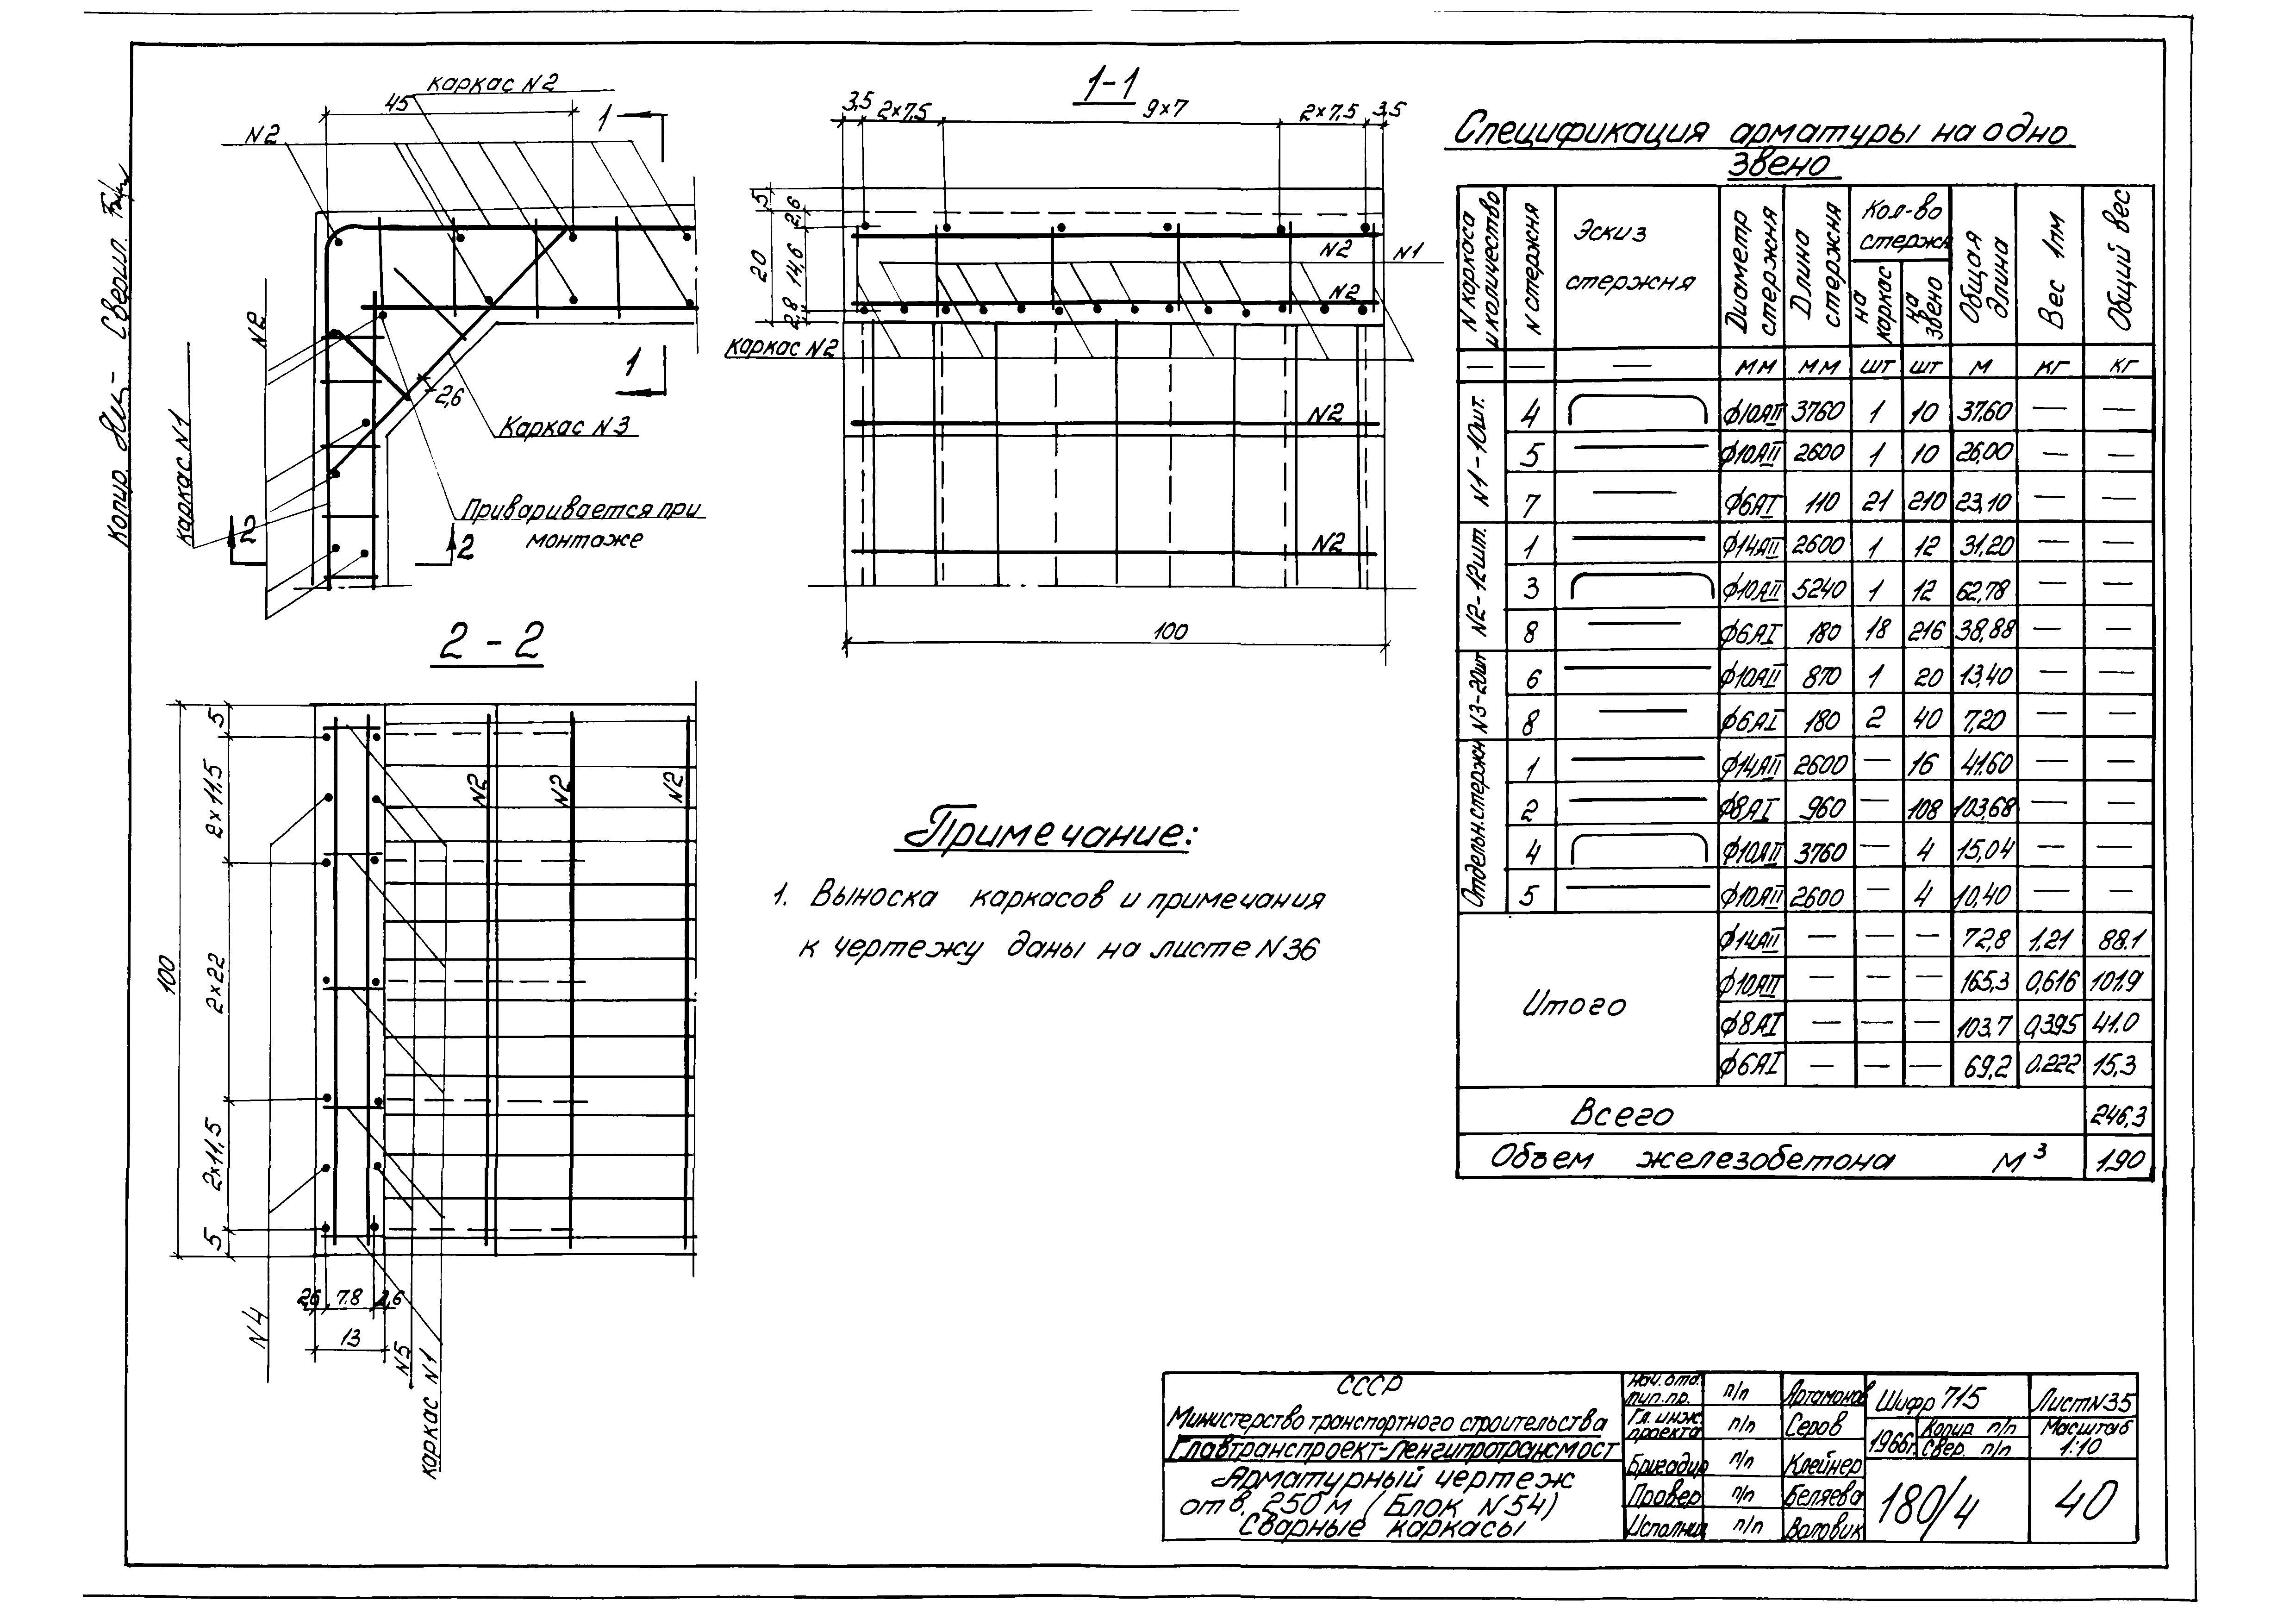 каркас N2
45
N2
1
N2
каркас N1
2,6
1
Каркас N3
Приваривается при
монтаже
2
2
Копир.
Сверил.
1-1
3,5
2×7,5
9×7
2×7,5
3,5
5
2,6
20
14,6
2,8
N2
N1
N2
каркас N2
N2
N2
100
2-2
5
2×11.5
2×22
2×11,5
5
100
N2
N2
N2
2,6
7.8
2,6
13
N4
N5
каркас N1
Примечание:
1. Выноска каркасов и примечания
к чертежу даны на листе N36
Спецификация арматуры на одно
звено
N каркаса и количество
N стержня
Эскиз стержня
Диаметр стержня
Длина стержня
Кол-во стержн
на каркас
на звено
Общая длина
Вес 1пм
Общий вес
— — — мм мм шт шт м кг кг
N1-10шт.
4 ф10АII 3760 1 10 37.60 — —
5 ф10АII 2600 1 10 26,00 — —
7 ф6АI 110 21 210 23,10 — —
N2-12шт.
1 ф14АII 2600 1 12 31.20 — —
3 ф10АII 5240 1 12 62,78 — —
8 ф6АI 180 18 216 38,88 — —
N3-20шт
6 ф10АII 870 1 20 13,40 — —
8 ф6АI 180 2 40 7,20 — —
Отдельн.стержн
1 ф14АII 2600 — 16 41.60 — —
2 ф8АI 960 — 108 103,68 — —
4 ф10АII 3760 — 4 15,04 — —
5 ф10АII 2600 — 4 10,40 — —
Итого
ф14АII — — — 72,8 1.21 88.1
ф10АII — — — 165,3 0,616 101.9
ф8АI — — — 103.7 0,395 41.0
ф6АI — — — 69,2 0.222 15,3
Всего 246,3
Объем железобетона м³ 1.90
СССР
Министерство транспортного строительства
Главтранспроект-Ленгипротрансмост
Арматурный чертеж
отв. 2.50м (Блок N54)
Сварные каркасы
Нач. отд. тип.пр. п/п Артамонов
Гл. инж. проекта п/п Серов
Бригадир п/п Клейнер
Провер п/п Беляева
Исполнил п/п Воловик
Шифр 715
Лист N35
1966г.
Копир п/п
Свер. п/п
Масштаб
1:10
180/4
40